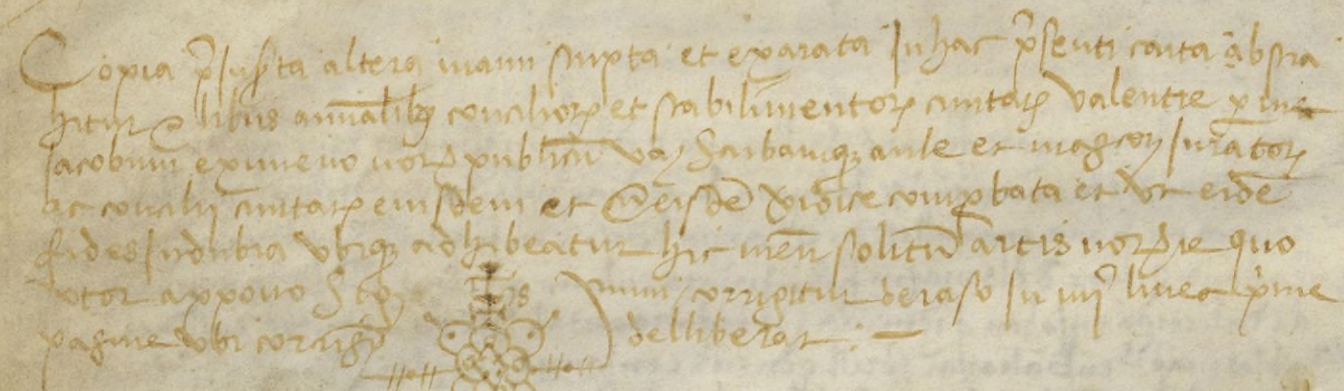 Copia p̃suscⁱpta altera manu scripta et exarata In hac p̃senti carta abstra
hitur libris annualibꝫ conciliorꝫ et stabilimentorꝫ ciuitatꝫ Valentie p me
Jacobum eximeno norꝫ publicū scribamqꝫ aule et mag̃corꝫ Juratorꝫ
ac concilij ciuitatꝫ eiusdem et cũ eisdē comprobata et Vt eidē
fides Indubia Vbiqꝫ adhibeatur hic meū solitū artis norꝫie quo
vtor appono Sig num corrigitur deraso In iiijᵃ linea p̃me
pagine vbi corrigⁱ delliberat : —